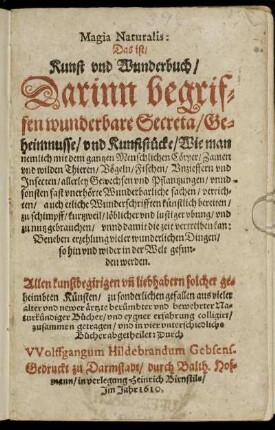 Magia Naturalis:
Das ist/
Kunst vnd Wunderbuch/
Darinn begrif-
fen wunderbare Secreta/Ge-
heimnusse/ vnd Kunststücke/ Wie man
nemlich mit dem gantzen Menschlichen Cörper/ Zamen
vnd wilden Thieren/ Vögeln/ Fischen/ Vnzieffern vnd
Insecten/ allerley Gewechsen vnd Pflantzungen/ vnnd
sonsten fast vnerhörte Wunderbarliche sachen/ verrich-
ten/ auch etliche Wunderschrifften künstlich bereiten/
zu schimpff/ kurtzweil/ löblicher vnd lustiger vbung/ vnd
zu nutz gebrauchen/ vnnd damit die zeit vertreiben kan:
Beneben erzehlung vieler wunderlichen Dingen/
so hin vnd wider in der Welt gefun-
den werden.
Allen kunstbegirigen vñ liebhabern solcher ge-
heimbten Künsten/ zu sonderlichen gefallen aus vielen
alter vnd newer ärtzte berümbter vnd bewehrter Na-
turkündiger Bücher/ vnd eygner erfahrung colligirt/
zusammen getragen/ vnd in vier vnterschiedliche
Bücher abgetheilet: Durch
VVolffgangum Hildebrandum Gebsens.
Gedruckt zu Darmstadt/ durch Balth. Hof-
mann/ in verlegung Heinrich Birnstils/
Im Jahr 1610.